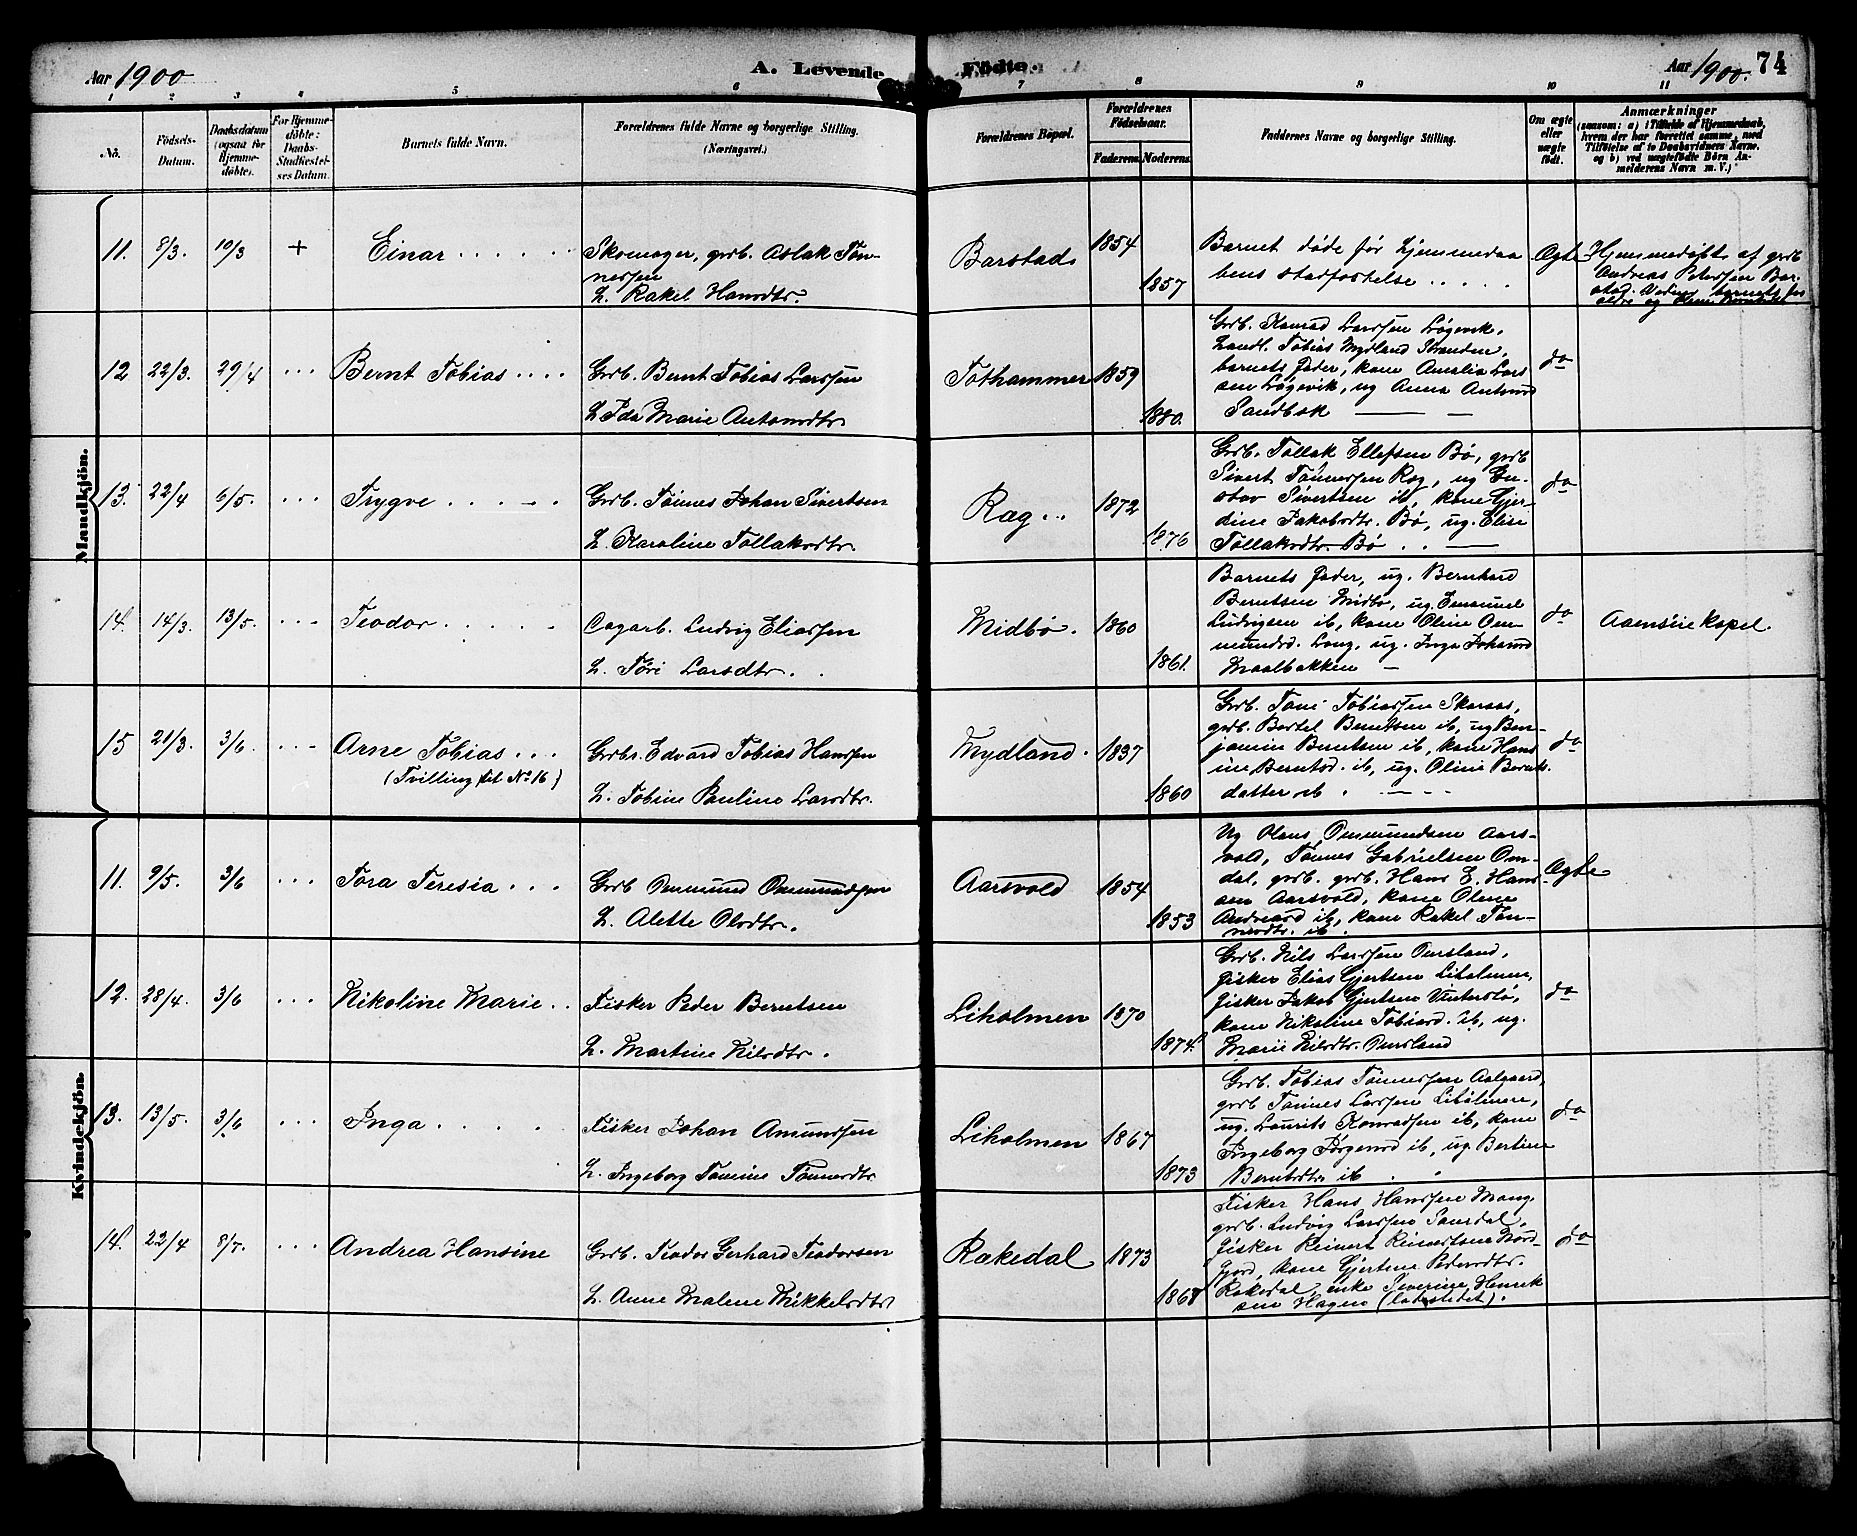 Aar 1900
A. Levende Fødte.
Aar 1900. 74
1 2 3 4 5 6 7 8 9 10 11
No.
Fødsels-
Datum.
Daabsdatum
(ogsaa for
Hjemme-
døbte).
For Hjemme-
døbte:
Daabs-
Stadfæstel-
ses Datum.
Barnets fulde Navn.
Forældrenes fulde Navne og borgerlige Stilling.
(Næringsvei.)
Forældrenes Bopæl.
Forældrenes
Fødselsaar.
Faderens. Moderens.
Faddernes Navne og borgerlige Stilling.
Om ægte
eller
uægte
født.
Anmærkninger
(saasom: a) i Tilfælde af Hjemmedaab,
hvem der har forrettet samme, med
Tilføielse af to Daabsvidners Navne,
og b) ved uægtefødte Børn An-
melderens Navn m. V.)
Mandkjøn.
11. 8/3. 10/3 + Einar
Skomager, grb. Aslak Tøn-
nessen
& Rakel Hansdtr.
Barstad 1854
1857
Barnet døde før hjemmedaa
bens stadfæstelse
Ægte
Hjemmedøbt af grb
Andreas Petersen Bar-
stad. Vidner barnets for
12 22/3. 29/4 Bernt Tobias
Grb. Bernt Tobias Larssen
& Ida Marie Antonsdtr
Tothammer 1859
1880.
Grb. Konrad Larssen Løgevik,
Landl. Tobias Mydland Stranden,
barnets fader, kone Amalia Lars
sen Løgevik, ug Anna Antonsd
Sandbæk
do
13. 22/4 6/5. Trygve
Grb. Tønnes Johan Sivertsen
& Karoline Tollaksdtr.
Ræg 1872
1876
Grb. Tollak Ellefsen Bø, grb
Sivert Tønnessen Ræg, ug Gu-
stav Sivertsen ib, kone Gjer-
dine Jakobsdtr. Bø, ug. Elise
Tollaksdtr. Bø
do
14. 14/3. 13/5. Teodor
& Tøri Larsdtr.
Midbø. 1860
1861.
Barnets fader, ug. Bernhard
Berntsen Midbø, ug Emanuel
Ludvigsen ib, kone Oline Om-
mundsd. Long, ug. Inga Johansd
Maalbakken
do
Aensire Kapel.
15 21/3. 3/6. Arne Tobias
(Tvilling til No 16)
Grbr. Edvard Tobias Hanssen
& Tobine Pauline Larsdtr.
Mydland. 1837
1860
Grb. Tøni Tobiassen Skaraas,
grb. Bertel Berntsen ib, ug Ben-
jamin Berntsen ib, kone Hans
ine Berntsd. ib, ug. Oline Bernts-
datter ib
do
Kvindekjøn.
11. 9/5. 3/6 Tora Teresia
Grb Ommund Ommundsen
& Alette Olsdtr.
Aarsvold 1854
1853
Ug Olaus Ommundsen Aars-
vold, Tønnes Gabrielsen Om-
dal, grb. grb. Hans E. Hans
sen Aarsvold, kone Olene
Andreasd ib, kone Rakel Tøn-
nesdtr. ib.
Ægte
12. 28/4. 3/6 Nikoline Marie
Fisker Peder Berntsen
& Martine Nilsdtr.
Liholmen 1870
1874.
Grb. Nils Larssen Omsland,
fisker Elias Gjertsen Liholmen,
fisker Jakob Gjertsen Vinterstø,
kone Nikoline Tobiasd. ib, ug.
Marie Nilsdtr. Omsland
do
13. 13/5. 3/6 Inga
Fisker Johan Amundsen
& Ingeborg Tomine Tønnesdtr
Liholmen 1867
1873
Grb. Tobias Tønnessen Aalgaard,
grb Tønnes Larssen Liholmen,
ug. Laurits Konradsen ib, kone
Ingeborg Jørgensd ib, ug. Bertine
Berntsdtr ib
do
14. 22/4 8/7. Andrea Hansine
Grb. Teodor Gerhard Teodorsen
& Anne Malene Mikkelsdtr
Rækedal 1873
1867
Fisker Hans Hanssen Mong,
grb. Ludvig Larssen Samdal,
fisker Reinert Reinertsen Nord-
fjord, kone Gjertine Pedersdtr.
Rækedal, enke Severine Henrik
sen Hagen (ladestedet).
do